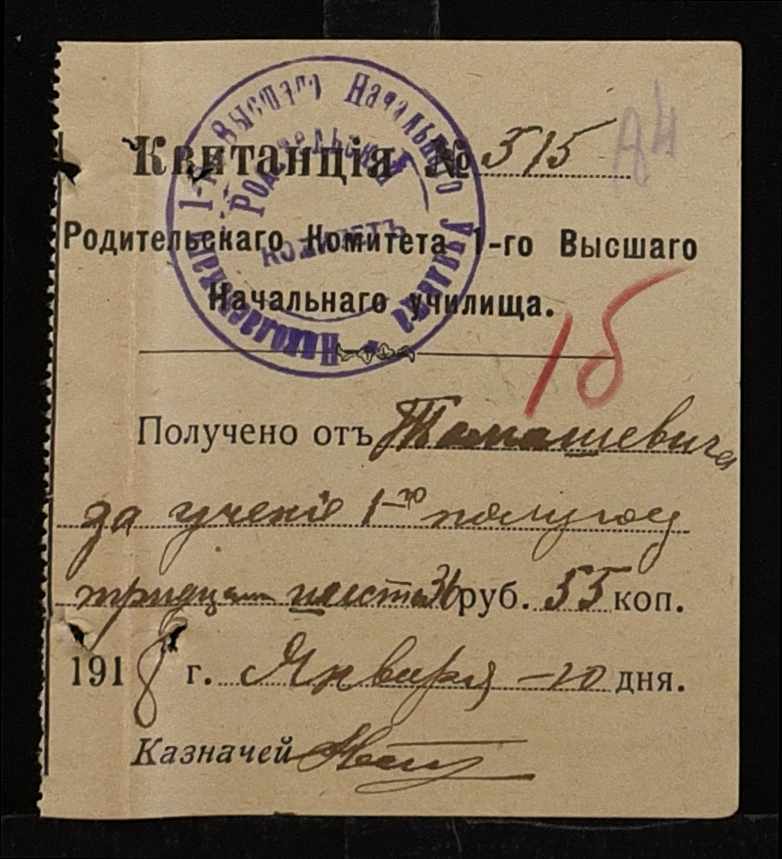 Квитанція № 515
Родительскаго Комитета 1-го Высшаго
Начальнаго училища.
Николаевскаго 1-го Высшаго Начальнаго Училища
Родительскій
Комитетъ
15
Получено отъ Томашевича
за ученіе 1-го полугод
тридцать шесть 36 руб. 55 коп.
1918 г. Января - 20 дня.
Казначей